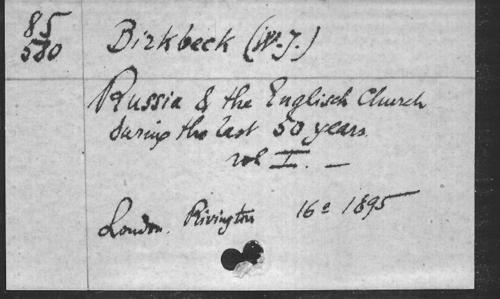 85
580
Birkbeck (W. J.)
Russia & the Englisch Church
during the last 50 years.
vol I. —
London. Rivington 16º 1895